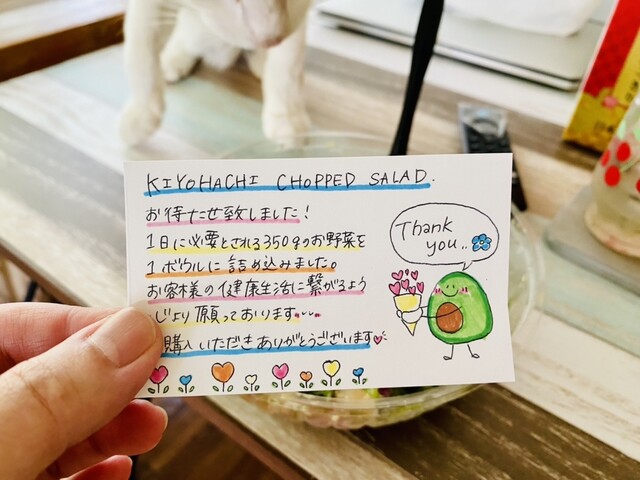 KIYOHACHI CHOPPED SALAD.
お待たせ致しました!
1日に必要とされる350gのお野菜を
1ボウルに詰め込みました。
お客様の健康生活に繋がるよう
より願っております
購入いただきありがとうございます
Thank
you..